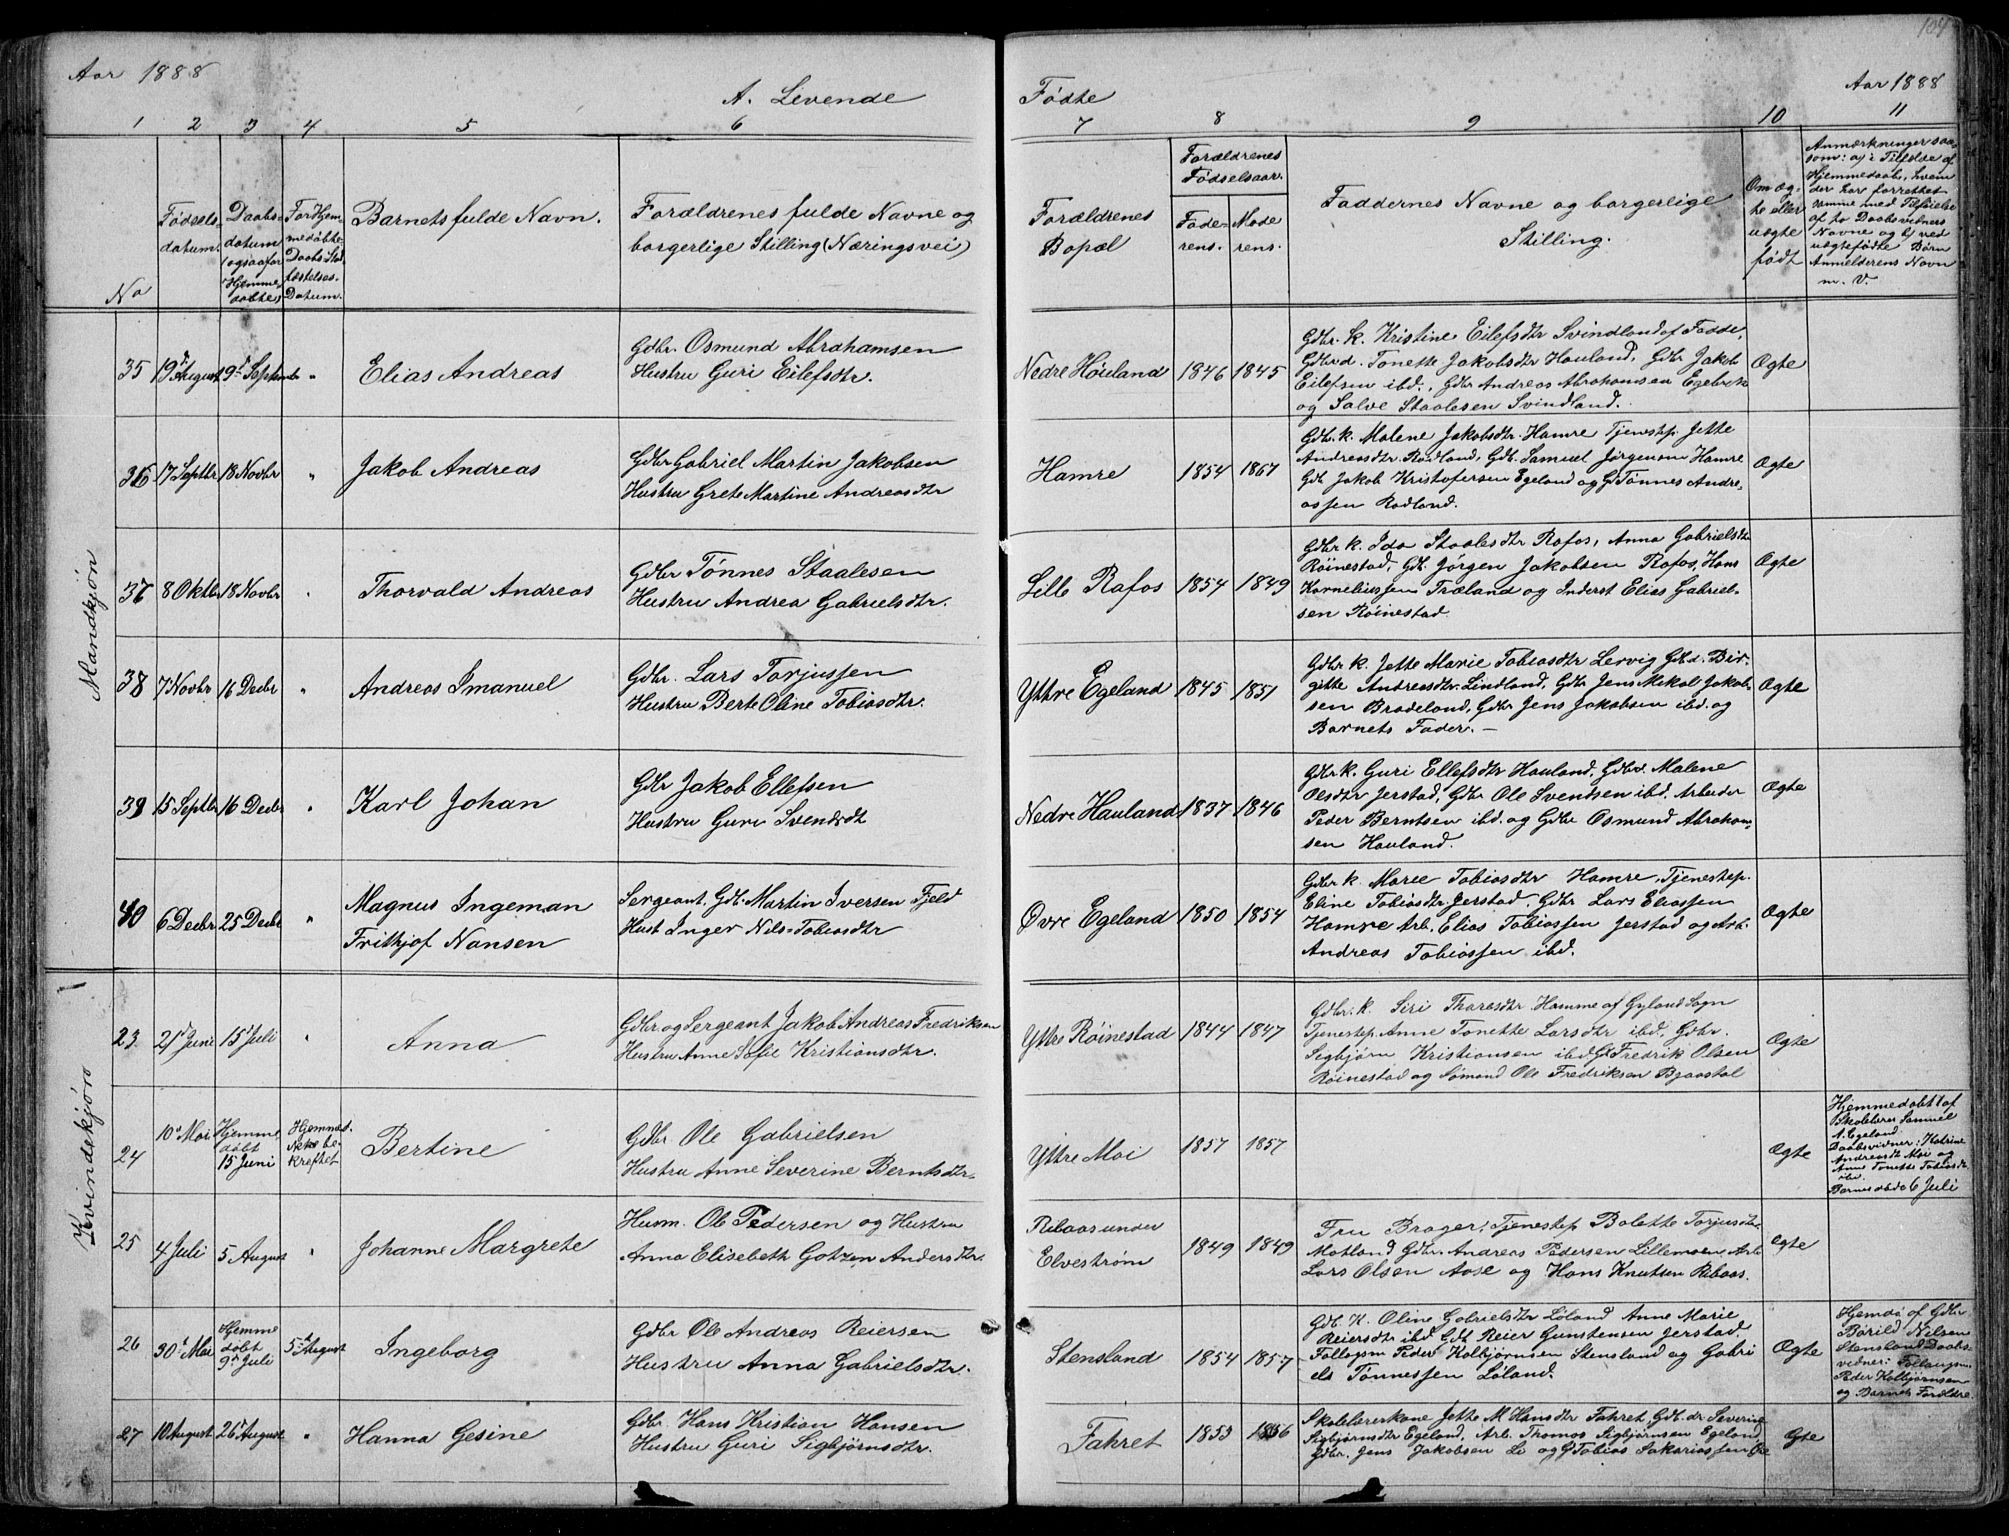 104
Aar 1888
A. Levende
Fødte
Aar 1888
1 2 3 4 5 6 7 8 9 10 11
No
Fødsels-
datum.
Daabs-
datum
(ogsaa for
Hjemme-
døbte)
For Hjem-
medøbte
Daabs Stad-
fæstelses-
Datum.
Barnets fulde Navn.
Forældrenes fulde Navne og
borgerlige Stilling (Næringsvei)
Forældrenes
Bopæl
Forældrenes
Fødselsaar.
Fade-
rens.
Mode
rens.
Faddernes Navne og borgerlige
Stilling.
Om æg-
te eller
uægte
født
Anmærkninger saa-
som: a) i Tilfælde af
Hjemmedaab, hvem
der har forrettet
samme med Tilføielse
af to Daabsvidners
Navne og b) ved
uægtefødte Børn
Anmelderens Navn
m. V.
Mandkjøn
35 19de August 9de Septembr "
Elias Andreas
Gdbr. Osmund Abrahamsen
Hustru Guri Eilefsdtr.
Nedre Höuland 1846 1845
Gdbr. k. Kristine Eilefsdtr Svindland af Fadde,
Gdbrd. Tonette Jakobsdtr Hauland, Gdbr Jakob
Eilefsen ibd., Gdbr Andreas Abrahamsen Egebrek
og Salve Staalesen Svindland.
Ægte
36 17 Septbr 18 Novbr "
Jakob Andreas
Gdbr Gabriel Martin Jakobsen
Hustru Grete Martine Andreasdtr
Hamre 1854 1867
Gdbr. k. Malene Jakobsdtr Hamre Tjenestep. Jette
Andreasdtr. Rødland, Gdb. Samuel Jørgensen Hamre
Gdb Jakob Kristofersen Egeland og G. Tønnes Andre-
assen Rødland.
Ægte
37 8 Oktbr 18 Novbr "
Thorvald Andreas
Gdbr Tönnes Staalesen
Hustru Andrea Gabrielsdtr.
Lille Rafos 1854 1849
Gdbr k. Ida Staalesdtr Rafos, Anna Gabrielsdtr
Röinestad, Gdb. Jörgen Jakobsen Rafos, Hans
Korneliussen Træland og Inderst Elias Gabriel-
sen Röinestad
Ægte
38 7 Novbr 16 Decbr "
Andreas Imanuel
Gdbr. Lars Torjussen
Hustru Berte Oline Tobiasdtr.
Yttre Egeland 1845 1851
Gdbr k. Jette Marie Tobiasdtr Lervig Gdb.d. Bir-
gitte Andreasdtr Lindland, Gdbr Jens Mikal Jakob-
sen Brødeland, Gdbr Jens Jakobsen ibd. og
Barnets Fader. —
Ægte
39 15 Septbr 16 Decbr "
Karl Johan
Gdbr Jakob Ellefsen
Hustru Guri Svendsdt
Nedre Hauland 1837 1846
Gdbr k. Guri Ellefsdtr Hauland, Gdbrd. Malene
Olsdtr Jerstad, Gdbr Ole Svendsen ibd. Arbeider
Peder Berntsen ibd. og Gdbr Osmund Abraham-
sen Hauland.
Ægte
40 6 Decbr 25 Decbr "
Magnus Ingeman
Frithjof Nansen
Sergeant. Gdb. Martin Iversen Fjeld
Hust Inger Nils=Tobiasdtr
Øvre Egeland 1850 1854
Gdbr k. Marie Tobiasdtr Hamre, Tjenestep.
Eline Tobiasdtr Jerstad, Gdbr Lars Eliassen
Hamre Arb. Elias Tobiassen Jerstad og Arb.
Andreas Tobiassen ibd.
Ægte
Kvindekjøn
23 21 Juni 15 Juli "
Anna
Gdbr og Sergeant Jakob Andreas Fredriksen
Hustru Anne Sofie Kristiansdtr.
Yttre Röinestad 1844 1847
Gdbr. k. Siri Tharesdtr Hamme af Gyland Sogn
Tjenestep. Anne Tonette Larsdtr ibd., Gdbr.
Sigbjørn Kristiansen ibd G. Fredrik Olsen
Röinestad og Sømand Ole Fredriksen Bjaastal
Ægte
24 10de Mai Hjemme
døbt
15 Juni
Hjemmed.
ikke be-
kreftet
Bertine
Gdbr. Ole Gabrielsen
Hustru Anne Severine Berntsdtr.
Yttre Moi 1857 1857
Ægte
Hjemmedøbt af
Skolelærer Samuel
A. Egeland.
Daabsvidner: Katrine
Andreasdt Moi og
Anne Tonette Tobiasdt
ibd.
Barnet døde 6 Juli
25 4 Juli 5 August "
Johanne Margrete
Husm. Ole Pedersen og Hustru
Anna Elisebeth Gotzen Andersdtr.
Ribaas under
Elvestrøm 1849 1849
Fru Brager, Tjenestep Bolette Torjusdtr
Motland Gdbr. Andreas Pedersen Lillemoen, Arb
Lars Olsen Aase og Hans Knutsen Ribaas.
Ægte
26 30de Mai Hjemme
døbt
9de Juli
5te August
Ingeborg
Gdbr Ole Andreas Reiersen
Hustru Anna Gabrielsdtr.
Stensland 1854 1857
Gdb. K. Oline Gabrielsdtr Løland Anne Marie
Reiersdtr ibd Gdb Reier Gunstensen Jerstad.
Follogsm Peder Kolbjørnsen Stensland og Gabri
els Tønnessen Løland.
Ægte
Hjemdø af Gdbr
Børild Nilsen
Stensland Daabs-
vidner: Follaugsm.
Peder Kolbjørnsen
og Barnets Forældre.
27 10 August 26 August "
Hanna Gesine
Gdbr. Hans Kristian Hansen
Hustru Guri Sigbjørnsdtr.
Fahret 1853 1856
Skolelærerkone Jette M Hansdtr Fahret, Gdb. dr Severine
Sigbjørnsdtr Egeland, Arb. Thomas Sigbjørnsen Egeland,
Gdbr. Jens Jakobsen Li og G Tobias Sakariassen ibd
Ægte